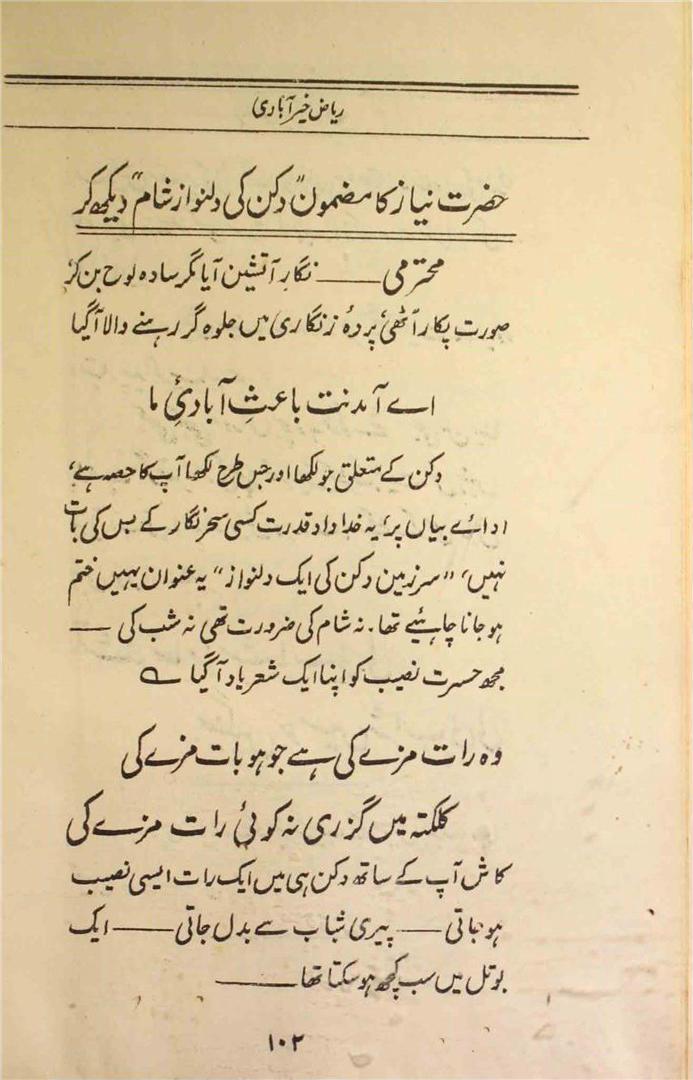 ریاض خیرآبادی
حضرت نیاز کا مضمون "دکن کی دلنواز شام" دیکھ کر
محترمی ——— نگارِ آتشین آیا مگر سادہ لوح بن کر،
صورت پکار اُٹھی، پردۂ زنگاری میں جلوہ گر رہنے والا آگیا
اے آمدنت باعثِ آبادیٔ ما
دکن کے متعلق جو لکھا اور جس طرح لکھا آپ کا حصہ ہے،
ادائے بیاں پر، یہ خداداد قدرت کسی سحر نگار کے بس کی بات
نہیں، "سرزمین دکن کی ایک دلنواز" یہ عنوان یہیں ختم
ہو جانا چاہئیے تھا۔ نہ شام کی ضرورت تھی نہ شب کی ——
مجھ حسرت نصیب کو اپنا ایک شعر یاد آگیا ے
وہ رات مزے کی ہے جو ہو بات مزے کی
کلکتہ میں گزری نہ کوئی رات مزے کی
کاش آپ کے ساتھ دکن ہی میں ایک رات ایسی نصیب
ہو جاتی —— پیری شباب سے بدل جاتی —— ایک
بوتل میں سب کچھ ہو سکتا تھا ———
۱۰۲